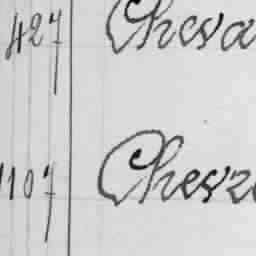 427 Cheva
1107 Chevr